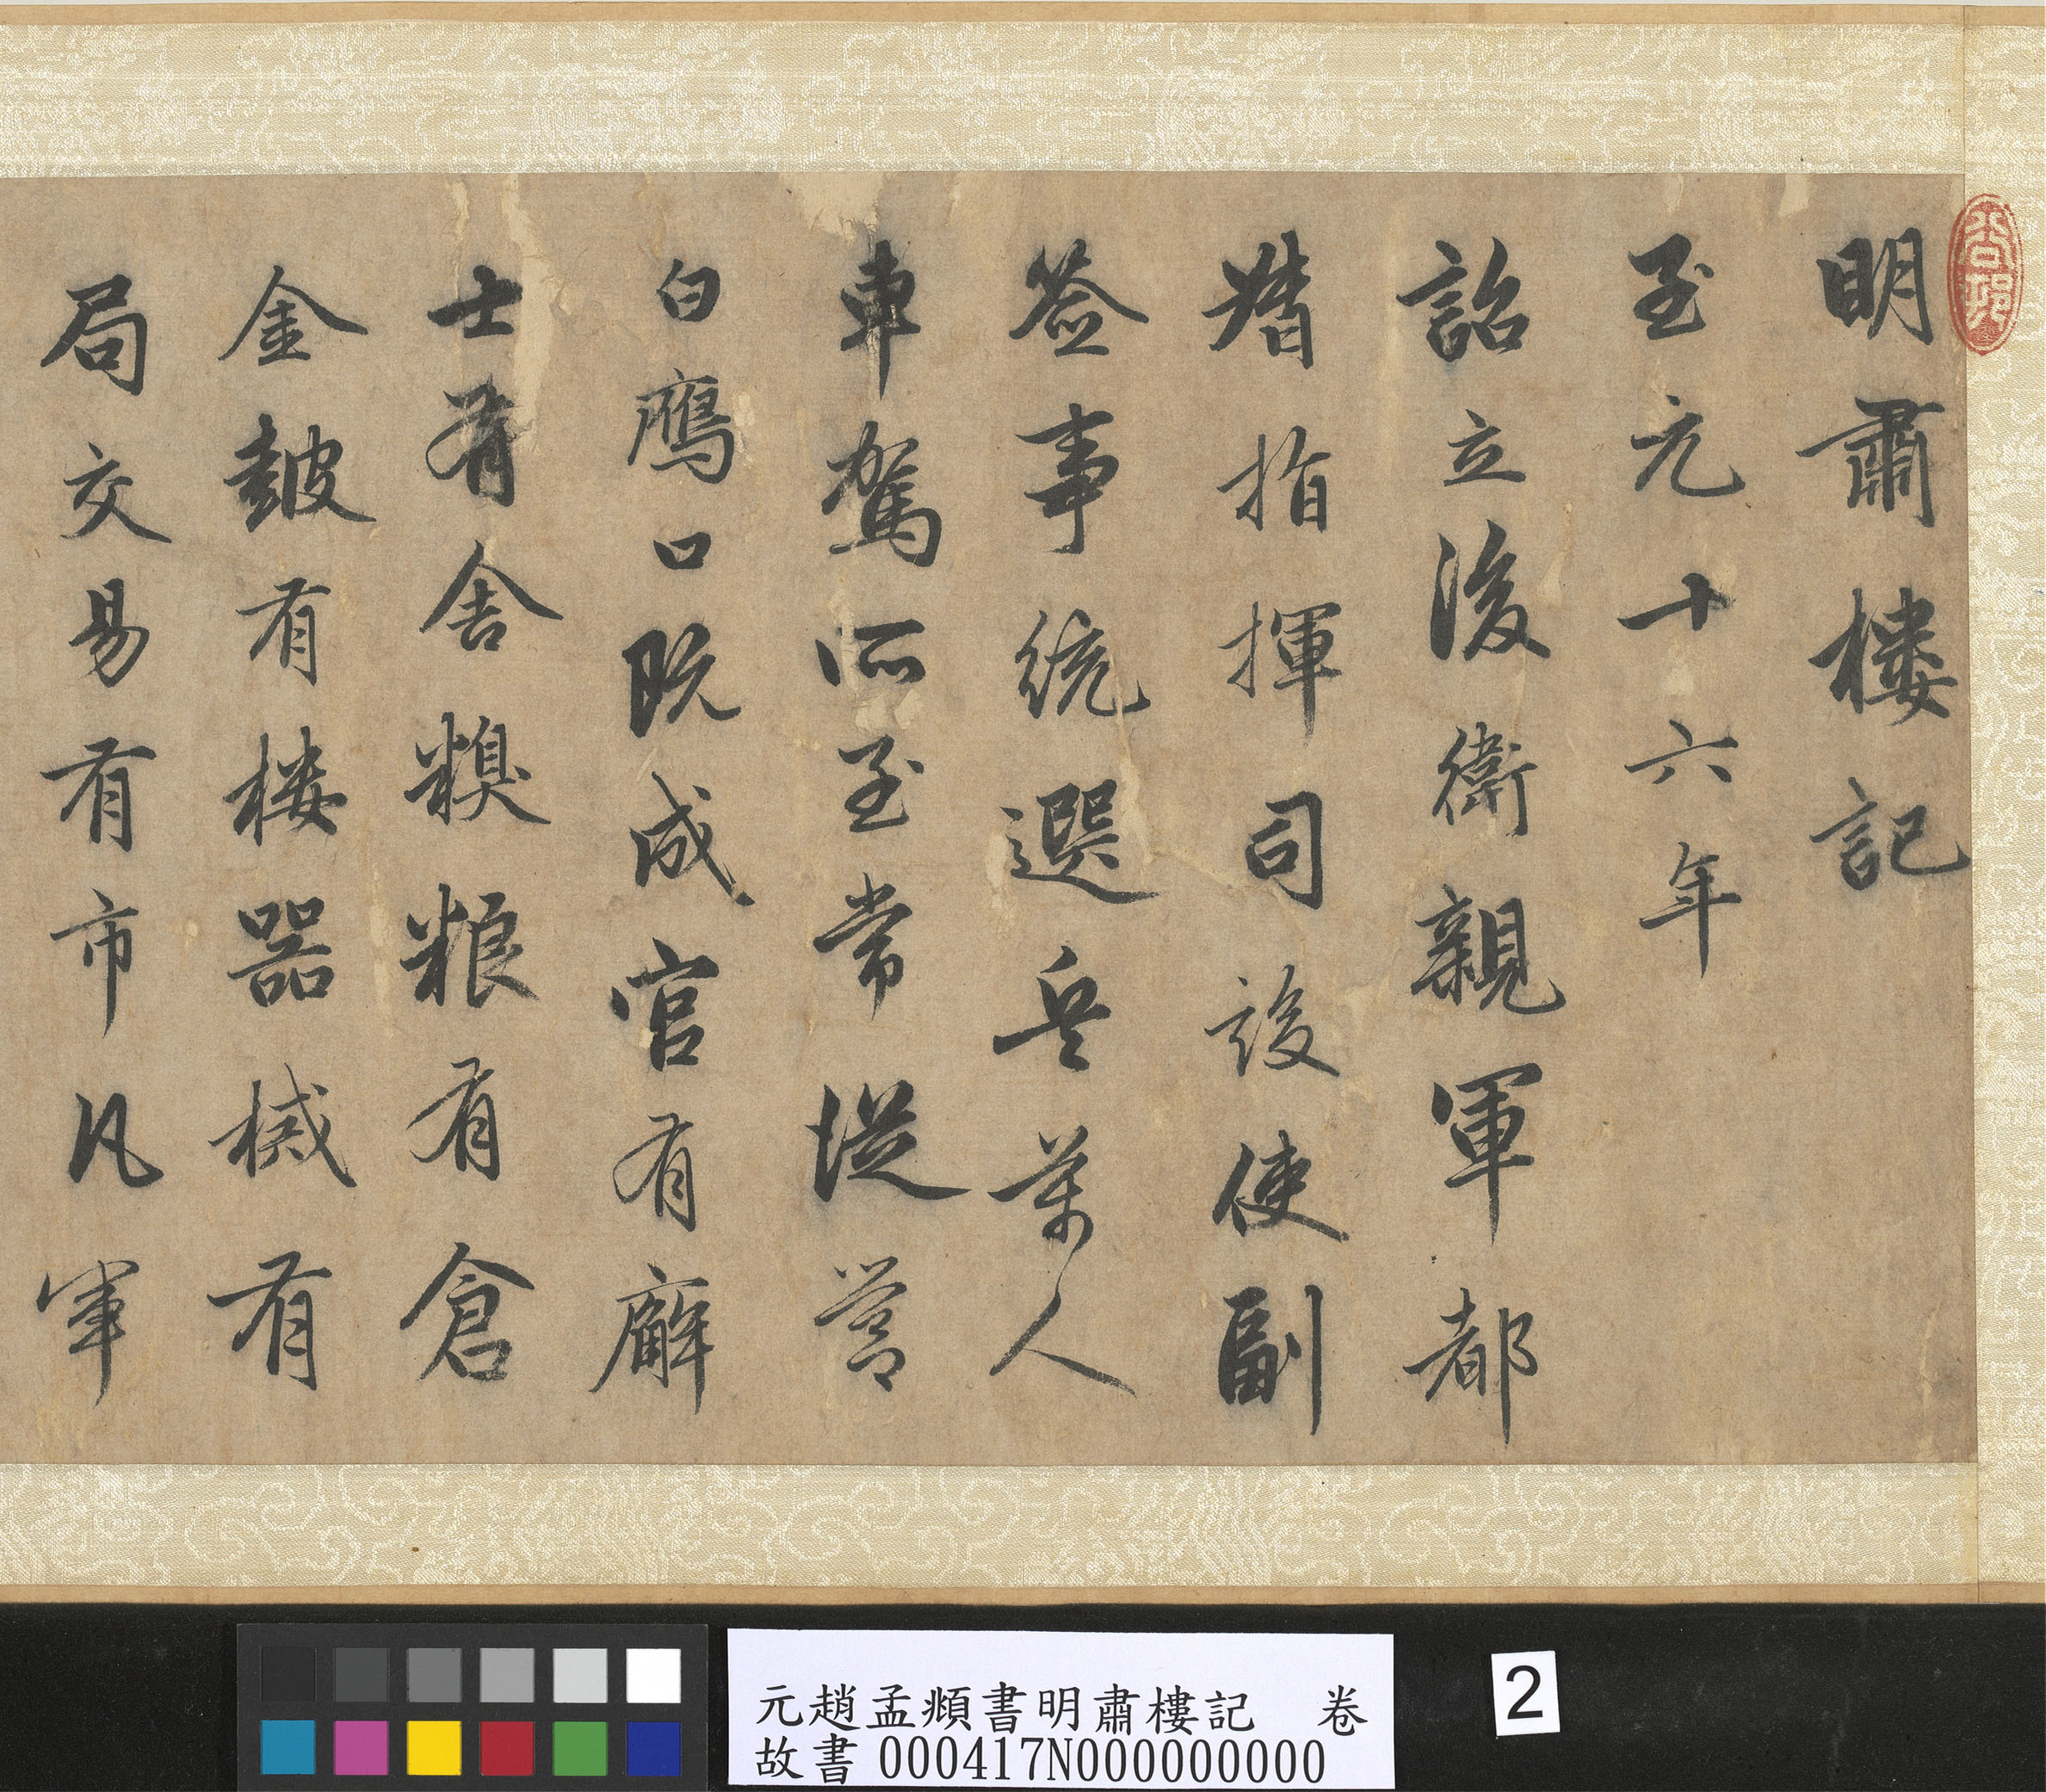 明肅樓記
至元十六年
詔立後衛親軍都
指揮司設使副
簽事統選兵萬人
車駕所至常從營
白鴈口既成官有廨
士有舍糗粮有倉
金鼓有楼器械有
局交易有市凡軍
元趙孟頫書明肅樓記 卷
故書 000417N000000000
2